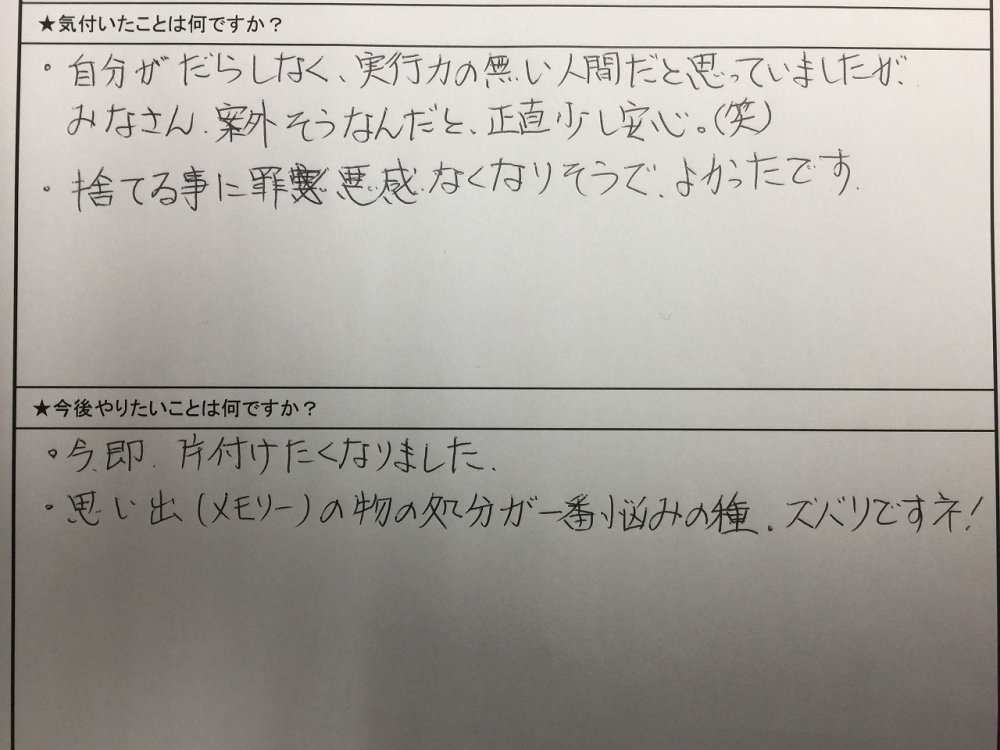 ★気付いたことは何ですか？
・自分がだらしなく、実行力の無い人間だと思っていましたが、
みなさん、案外そうなんだと、正直少し安心。(笑)
・捨てる事に罪悪感、なくなりそうで、よかったです。
★今後やりたいことは何ですか？
・今、即、片付けたくなりました、
・思い出(メモリー)の物の処分が一番悩みの種、ズバリですネ!